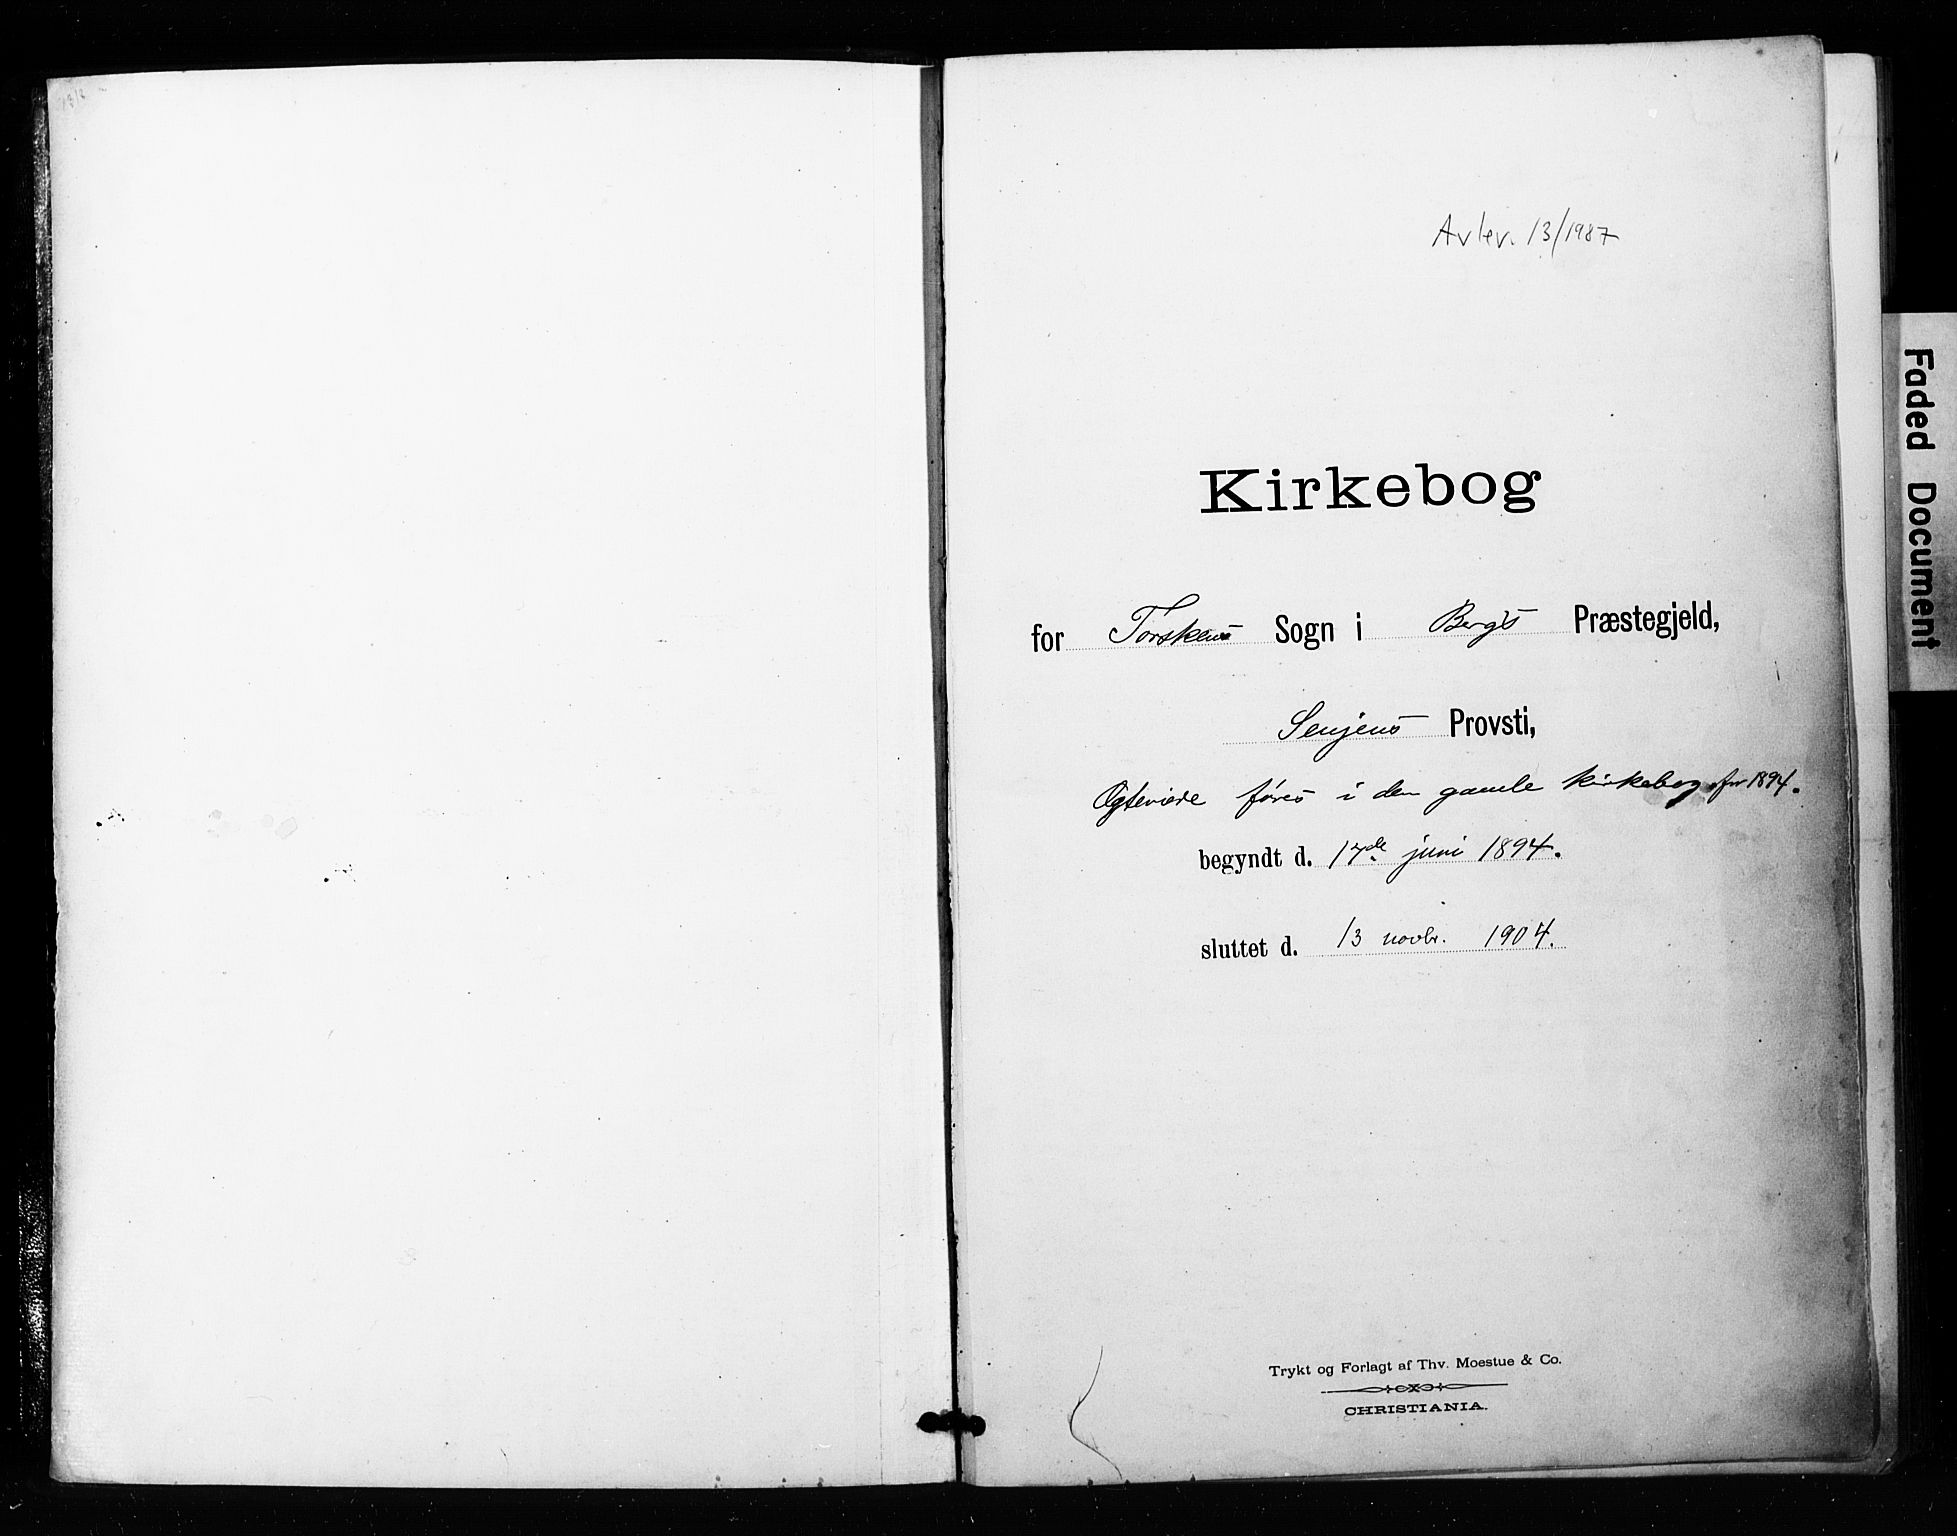 Avlev. 13/1987
Kirkebog
for Torskens Sogn i Bergs Præstegjeld,
Senjens Provsti,
Ægteviede føres i den gamle kirkebog før 1894.
begyndt d. 17de juni 1894.
sluttet d. 13 novbr. 1904.
Trykt og Forlagt af Thv. Moestue & Co.
CHRISTIANIA.
Faded Document